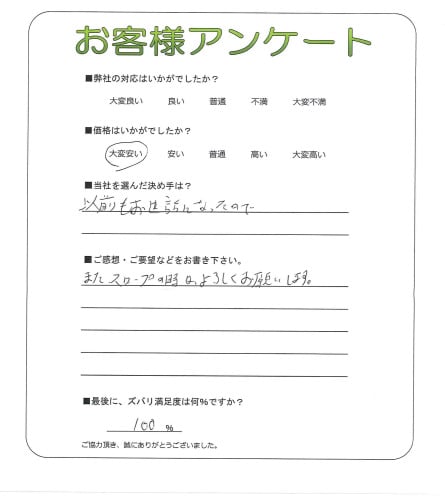 お客様アンケート
■弊社の対応はいかがでしたか?
大変良い 良い 普通 不満 大変不満
■価格はいかがでしたか?
大変安い 安い 普通 高い 大変高い
■当社を選んだ決め手は?
以前もお世話になったので
■ご感想・ご要望などをお書き下さい。
またスロープの時は、よろしくお願いします。
■最後に、ズバリ満足度は何%ですか?
100 %
ご協力頂き、誠にありがとうございました。